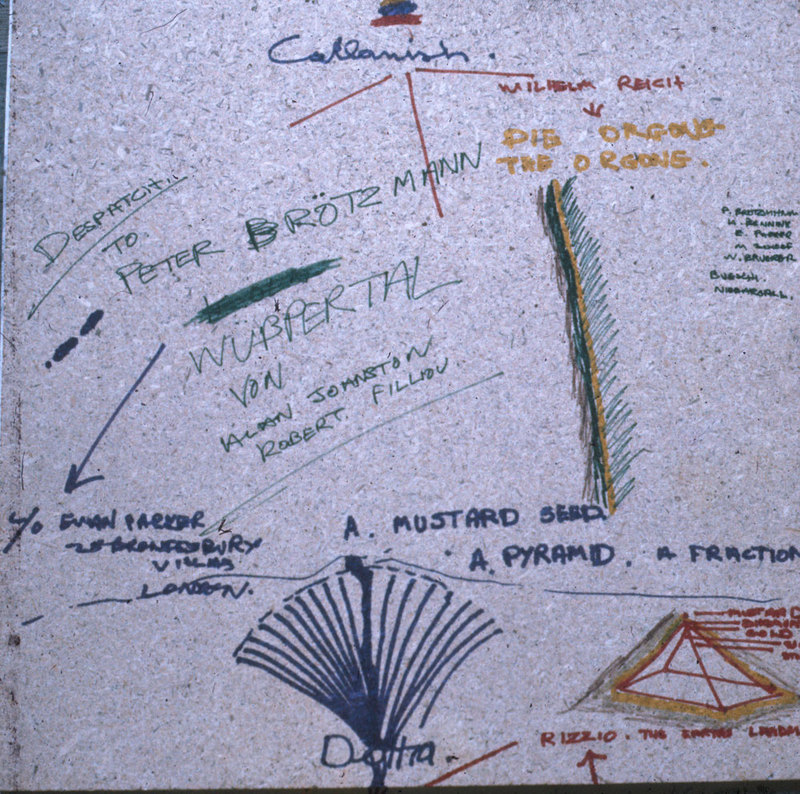 Callanish.
WILHELM REICH
DIE ORGONE
THE ORGONE.
DESPATCH..
TO
PETER BRÖTZMANN
WUPPERTAL
VON
ALAN JOHNSTON
ROBERT FILLIOU
P. BRÖTZMANN
H. BENNINK
E. PARKER
BUSCHI
NIEBERGALL.
C/O EVAN PARKER
28 BRONDESBURY
VILLAS
LONDON.
A. MUSTARD SEED.
A. PYRAMID. A FRACTION
MUSTARD
GOLD
Delta.
RIZZIO. THE EARTHS LANDM